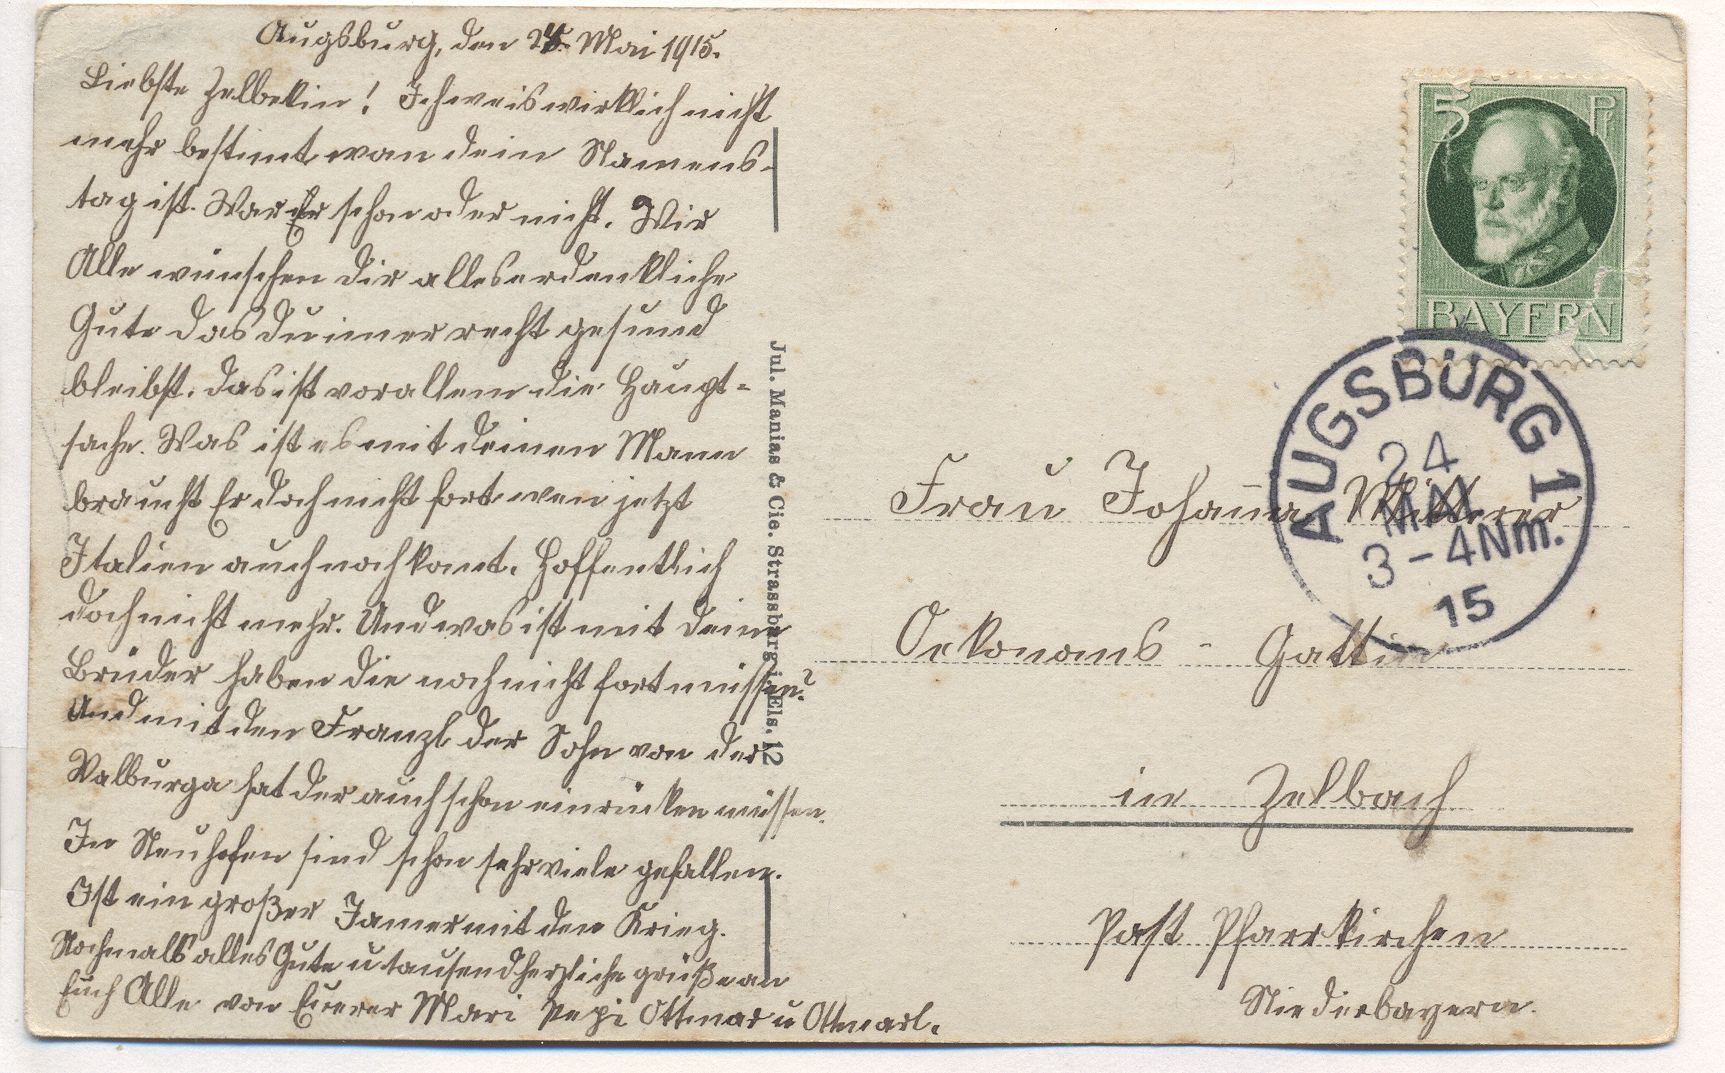 Augsburg, den 24. Mai 1915.
Liebste Zellbekin! Ich weis wirklich nicht
mehr bestimt wan dein Namens-
tag ist. War Er schon oder nicht. Wir
Alle wünschen dir alles erdenkliche
Gute das du imer recht gesund
bleibst. das ist vor allem die Haupt-
sache. Was ist es mit deinen Mann
braucht Er doch nicht fort wen jetzt
Italien auch noch komt. Hoffentlich
doch nicht mehr. Und was ist mit deine
Brüder haben die noch nicht fort müssen?
Und mit den Franzl der Sohn von der
Walburga hat der auch schon einrücken müssen.
In Neuhofen sind schon sehr viele gefallen.
Ist ein großer Jamer mit den Krieg.
Nochmals alles Gute u tausend herzliche grüße an
Euch Alle von Euerer Mari Pepi Ottmar u Ottmarl.
Jul. Manias & Cie. Strassburg i. Els. 12
5 Pf
BAYERN
AUGSBURG 1
24
MAI
3-4Nm.
15
Frau Johanna Mitterer
Oekonoms-Gattin
in Zelbach
Post Pfarrkirchen
Niederbayern.